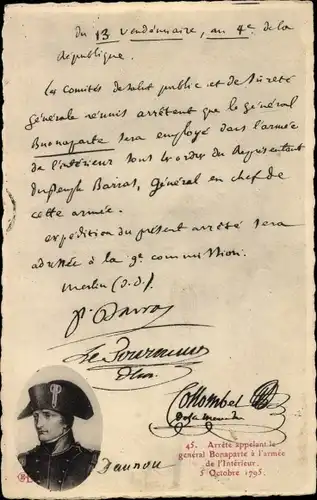 du 13 vendémiaire, an 4e de la
République.
Les Comités de salut public et de Sureté
générale réunis arrêtent que le général
Buonaparte sera employé dans l'armée
de l'intérieur sous les ordres du Représentant
du Peuple Barras, Général en chef de
cette armée.
expédition du présent arrêté sera
adressée à la 9e commission.
Merlin (d. D).
P. Barras
Le Tourneur
Collombel
Daunou
45. Arrêté appelant le
général Bonaparte à l'armée
de l'Intérieur.
5 Octobre 1795.